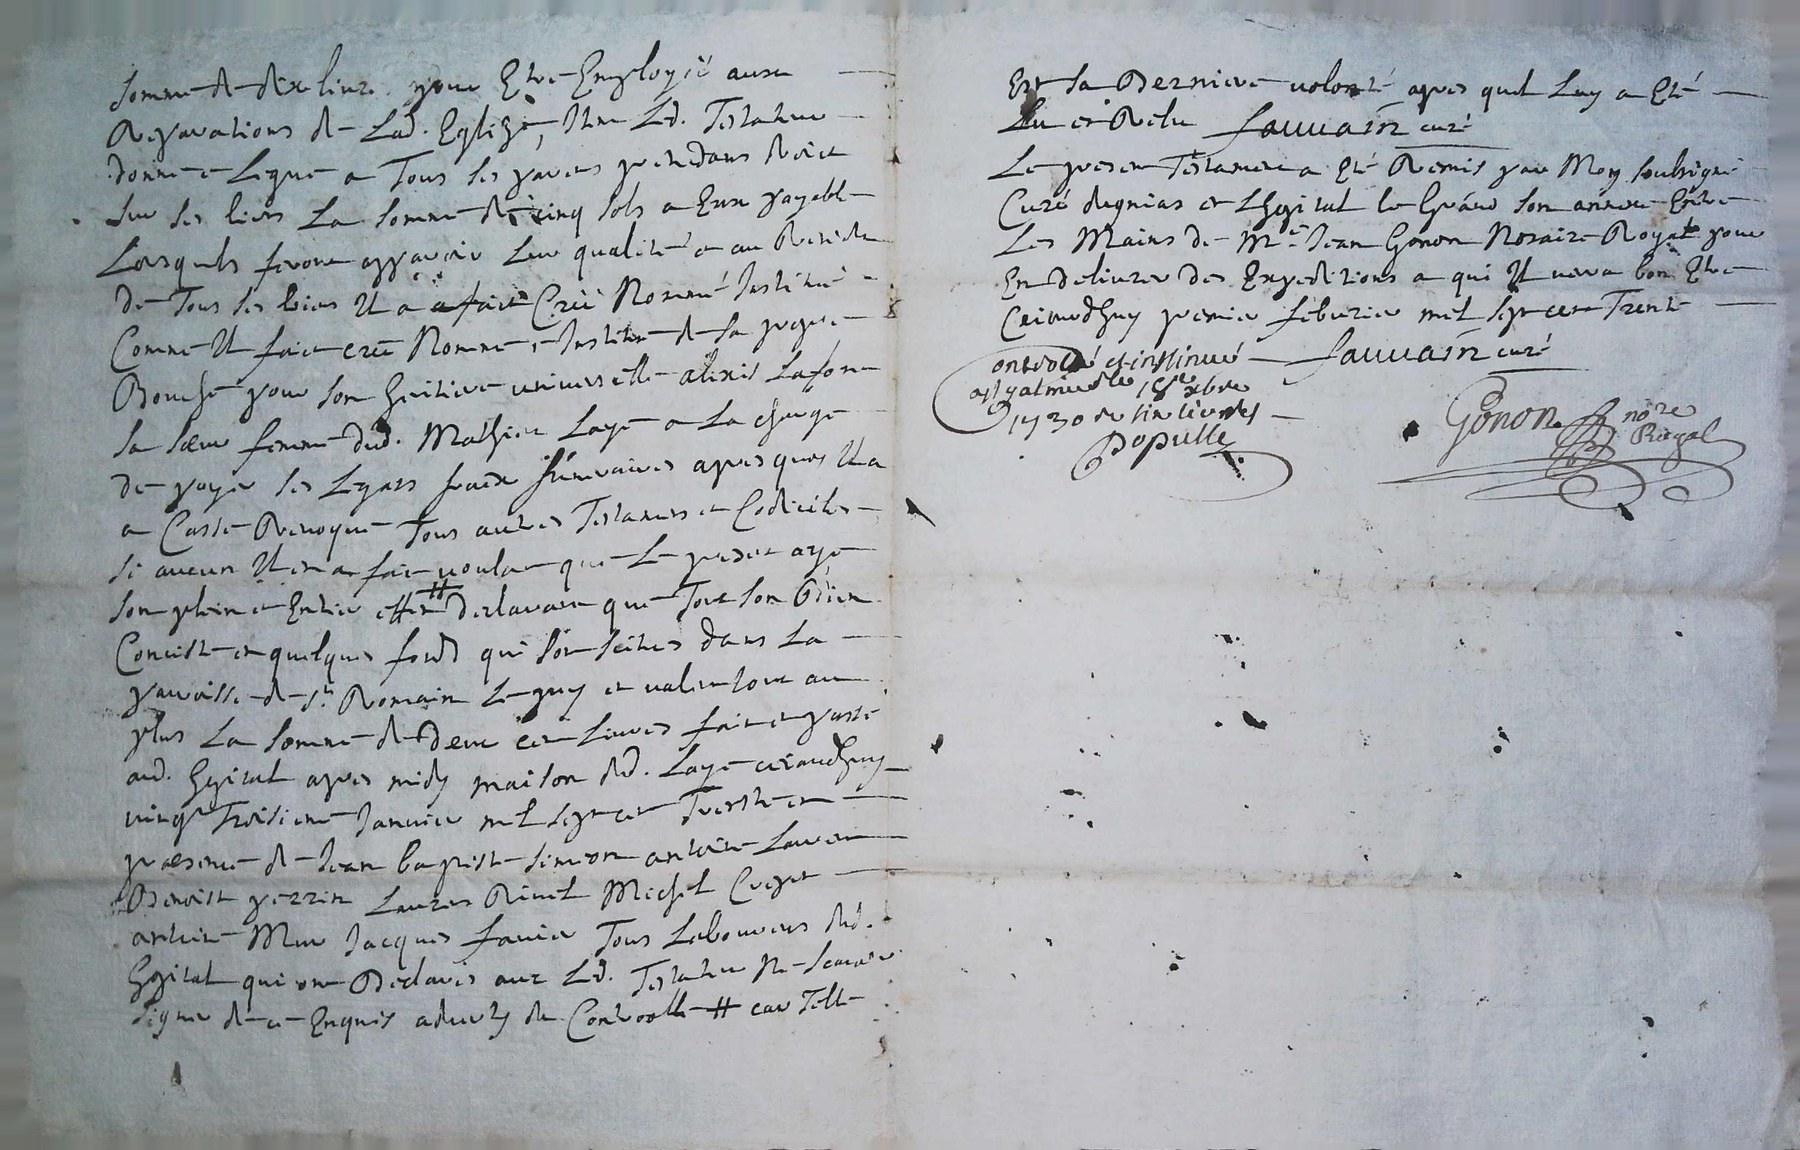 somme de dix livre pour Etre Employié aux
Reparations de Lad. Eglize, Item Led. Testateur
donne et Legue a Tous ses parens pretendans droict
sur ses biens La somme de cinq sols a Eux payable
Lorsquils feront apparoir Leur qualité et au Residu
de Tous ses biens Il a fait Créé Nommé Institué
Comme Il fait cree Nomme et Institue de sa propre
Bouche pour son heritiere universelle alexis Lafon
sa sœur femme dud. Mathieu Laye a La charge
de payer ses Legats fraix funeraires apres quoy Il a
a Casse Revoque Tous autres Testamens et Codicilles
si aucun Il en a fait voulant que Le present aye
son plein et Entier effet # declarant que Tout son Bien
Concist en quelques fonds qui sont scitues dans La
parroisse de St. Romain Le puy et valent tout au
plus La somme de deux cent Livres fait et passé
aud. hopital apres midy maison dud. Laye cejourdhuy
vingt Troisieme Janvier mil sept cent Trente en
presence de Jean baptiste simeon antoine Laurent
Benoist perrin Laurens Rivel Michel Crozet
antoine Mur Jacques favier Tous Laboureurs dud.
hopital qui ont Declarés avec Led. Testateur ne scavoir
signer de ce Enquis advertis du Controolle # car Telle
Est sa Derniere volonté apres quil Luy a Eté
Lu et Relu Jauuain curé
Le present Testament a Eté Remis par Moy soubsigné
Curé dagnias et Lhopital le Grand son annexe Entre
Les Mains de Me Jean Gonon Notaire Royal pour
En delivrer des Expeditions a qui Il verra bon Etre
Cejourdhuy premier feburier mil sept cent Trente
Jauuain curé
Controlé et insinué
a St galmier le 18e xbre
1730 Reçu six livres
Populle
Gonon nore
Royal